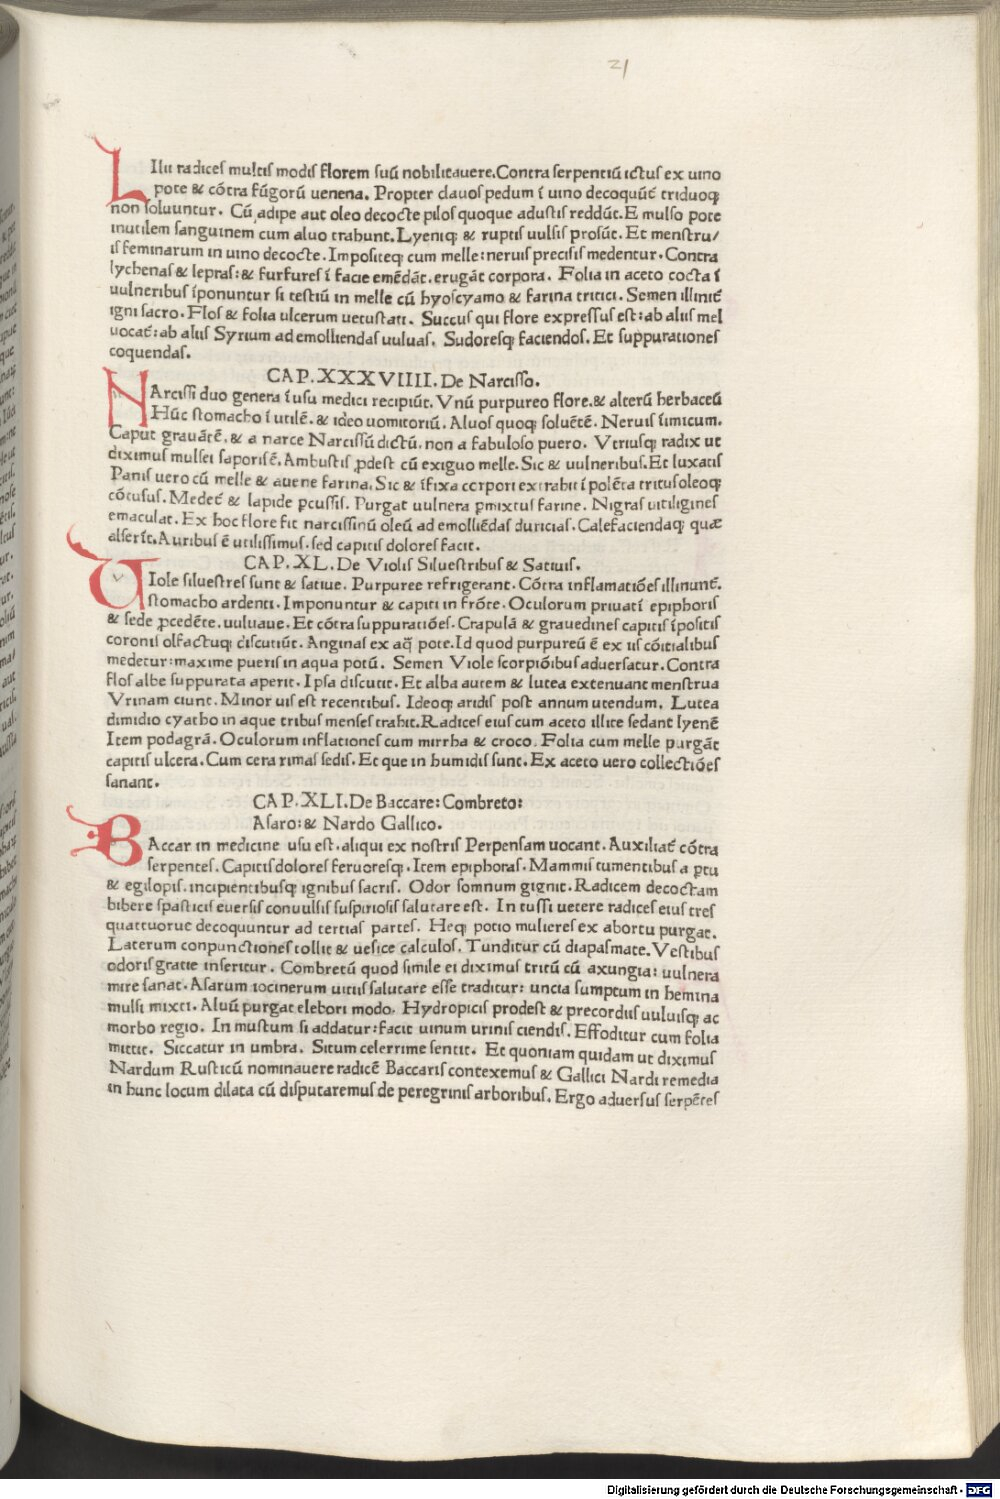 21
LIlii radiceſ multiſ modiſ florem ſuū nobilitauere. Contra ſerpentiū ictuſ ex uino
pote & cōtra fūgorū uenena. Propter clauoſ pedum ī uino decoquūt̄ triduoq;
non ſoluuntur. Cū adipe aut oleo decocte piloſ quoque aduſtiſ reddūt. E mulſo pote
inutilem ſanguinem cum aluo trahunt. Lyeniq; & ruptiſ uulſiſ proſūt. Et menſtru/
iſ feminarum in uino decocte. Impoſiteq; cum melle: neruiſ preciſiſ medentur. Contra
lychenaſ & lepraſ: & furfureſ ī facie emēdāt. erugāt corpora. Folia in aceto cocta ī
uulneribuſ īponuntur ſi teſtiū in melle cū hyoſcyamo & farina tritici. Semen illinit̄
igni ſacro. Floſ & folia ulcerum uetuſtati. Succuſ qui flore expreſſuſ eſt: ab aliiſ mel
uocat̄: ab aliiſ Syrium ad emolliendaſ uuluaſ. Sudoreſq; faciendoſ. Et ſuppurationeſ
coquendaſ.
CAP. XXXVIIII. De Narciſſo.
NArciſſi duo genera ī uſu medici recipiūt. Vnū purpureo flore. & alterū herbaceū
Hūc ſtomacho ī utilē. & ideo uomitoriū. Aluoſ quoq; ſoluētē. Neruiſ īimicum.
Caput grauātē. & a narce Narciſſū dictū. non a fabuloſo puero. Vtriuſq; radix ut
diximuſ mulſei ſaporiſ ē. Ambuſtiſ ꝓdeſt cū exiguo melle. Sic & uulneribuſ. Et luxatiſ
Paniſ uero cū melle & auene farina. Sic & īfixa corpori extrahit ī polēta trituſ oleoq;
cōtuſuſ. Medet̄ & lapide ꝑcuſſiſ. Purgat uulnera ꝑmixtuſ farine. Nigraſ uitiligineſ
emaculat. Ex hoc flore fit narciſſinū oleū ad emolliēdaſ duriciaſ. Calefaciendaq; quæ
alſerīt. Auribuſ ē utiliſſimuſ. ſed capitiſ doloreſ facit.
CAP. XL. De Violiſ Silueſtribuſ & Satiuiſ.
VIole ſilueſtreſ ſunt & ſatiue. Purpuree refrigerant. Cōtra inflamatiōeſ illinunt̄.
ſtomacho ardenti. Imponuntur & capiti in frōte. Oculorum priuatī epiphoriſ
& ſede ꝓcedēte. uuluaue. Et cōtra ſuppuratiōeſ. Crapulā & grauedineſ capitiſ īpoſitiſ
coroniſ olfactuq; diſcutiūt. Anginaſ ex aq̄ pote. Id quod purpureū ē ex iiſ cōitialibuſ
medetur: maxime pueriſ in aqua potū. Semen Viole ſcorpiōibuſ aduerſatur. Contra
floſ albe ſuppurata aperit. Ipſa diſcutit. Et alba autem & lutea extenuant menſtrua
Vrinam ciunt. Minor uiſ eſt recentibuſ. Ideoq; aridiſ poſt annum utendum. Lutea
dimidio cyatho in aque tribuſ menſeſ trahit. Radiceſ eiuſ cum aceto illite ſedant lyenē
Item podagrā. Oculorum inflationeſ cum mirrha & croco. Folia cum melle purgāt
capitiſ ulcera. Cum cera rimaſ ſediſ. Et que in humidiſ ſunt. Ex aceto uero collectiōeſ
ſanant.
CAP. XLI. De Baccare: Combreto:
Aſaro: & Nardo Gallico.
BAccar in medicine uſu eſt. aliqui ex noſtriſ Perpenſam uocant. Auxiliat̄ cōtra
ſerpenteſ. Capitiſ doloreſ feruoreſq;. Item epiphoraſ. Mammiſ tumentibuſ a ꝑtu
& egilopiſ. incipientibuſq; ignibuſ ſacriſ. Odor ſomnum gignit. Radicem decoctam
bibere ſpaſticiſ euerſiſ conuulſiſ ſuſpirioſiſ ſalutare eſt. In tuſſi uetere radiceſ eiuſ treſ
quattuorue decoquuntur ad tertiaſ parteſ. Heq; potio muliereſ ex abortu purgat.
Laterum conpunctioneſ tollit & ueſice calculoſ. Tunditur cū diapaſmate. Veſtibuſ
odoriſ gratie inſeritur. Combretū quod ſimile ei diximuſ tritū cū axungia: uulnera
mire ſanat. Aſarum iocinerum uitiiſ ſalutare eſſe traditur: uncia ſumptum in hemina
mulſi mixti. Aluū purgat elebori modo. Hydropiciſ prodeſt & precordiiſ uuluiſq; ac
morbo regio. In muſtum ſi addatur: facit uinum uriniſ ciendiſ. Effoditur cum folia
mittit. Siccatur in umbra. Situm celerrime ſentit. Et quoniam quidam ut diximuſ
Nardum Ruſticū nominauere radicē Baccariſ contexemuſ & Gallici Nardi remedia
in hunc locum dilata cū diſputaremuſ de peregriniſ arboribuſ. Ergo aduerſuſ ſerpēteſ
Digitalisierung gefördert durch die Deutsche Forschungsgemeinschaft - DFG